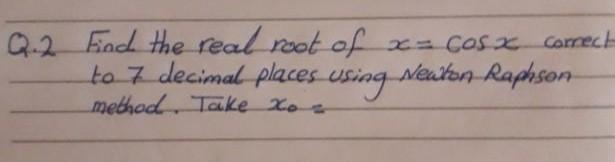 Q.2 Find the real root of x = cos x correct
to 7 decimal places using Newton Raphson
method. Take x₀ =